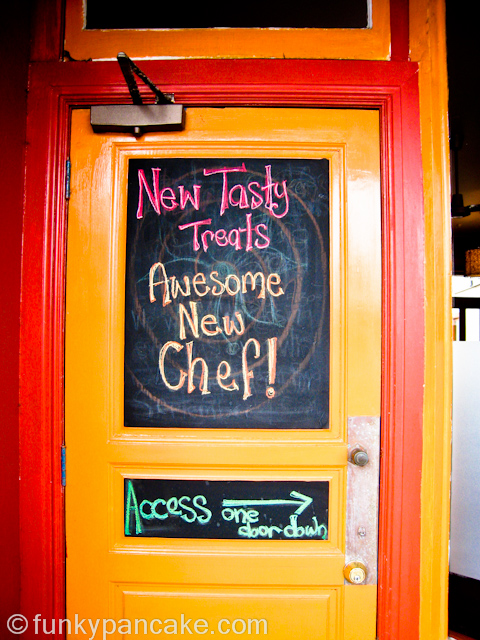 New Tasty
Treats
Awesome
New
Chef!
Access → one
door down
© funkypancake.com